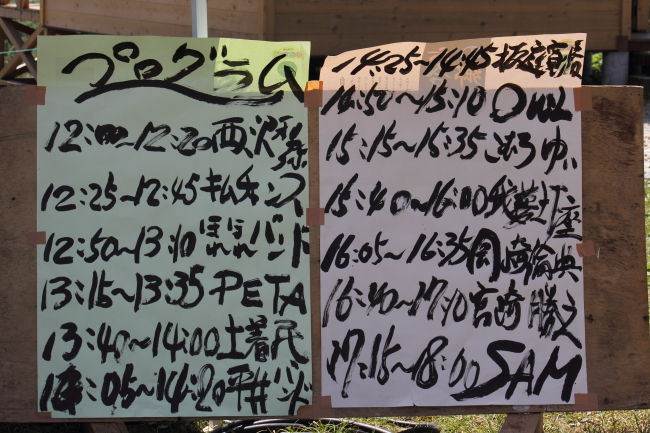 プログラム
12:00~12:20西沢和弥
12:25~12:45キムチャンス
12:50~13:10ほれほれバンド
13:15~13:35PETA
13:40~14:00土着民
14:05~14:20平井バンド
14:25~14:45坂庭賢
14:50~15:10 OWL
15:15~15:35こむろゆい
15:40~16:00
16:05~16:35岡崎倫典
16:40~17:10宮崎勝之
17:15~18:00 SAM